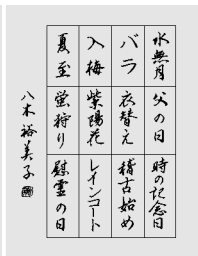 水無月
父の日
時の記念日
バラ
衣替え
稽古始め
入梅
紫陽花
レインコート
夏至
蛍狩り
慰霊の日
八木裕美子